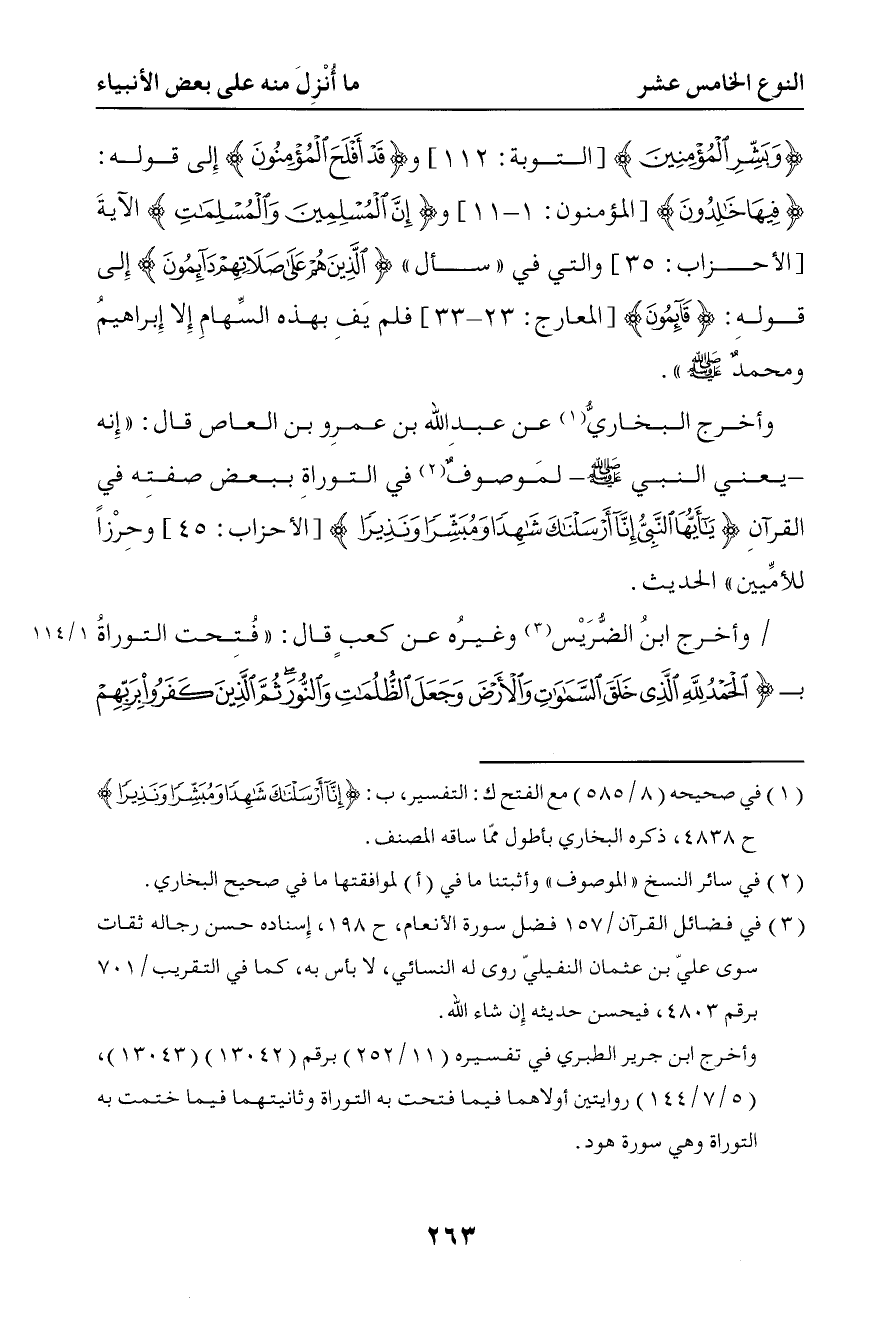 النوع الخامس عشر ما أُنْزِلَ منه على بعض الأنبياء
﴿ وَبَشِّرِ ٱلْمُؤْمِنِينَ ﴾ [ التوبة : ١١٢ ] و﴿ قَدْ أَفْلَحَ ٱلْمُؤْمِنُونَ ﴾ إلى قوله :
﴿ فِيهَا خَٰلِدُونَ ﴾ [ المؤمنون : ١-١١ ] و﴿ إِنَّ ٱلْمُسْلِمِينَ وَٱلْمُسْلِمَٰتِ ﴾ الآيةَ
[ الأحزاب : ٣٥ ] والتي في « سأل » ﴿ ٱلَّذِينَ هُمْ عَلَىٰ صَلَاتِهِمْ دَآئِمُونَ ﴾ إلى
قولِه : ﴿ قَآئِمُونَ ﴾ [ المعارج : ٢٣-٣٣ ] فلم يَفِ بهذه السِّهامِ إلا إبراهيمُ
ومحمدٌ ﷺ » .
وأخرج البخاريُّ(١) عن عبدالله بن عمرو بن العاص قال : « إنه
-يعني النبي ﷺ- لمَوصوفٌ(٢) في التوراةِ ببعض صفتِه في
القرآنِ ﴿ يَٰٓأَيُّهَا ٱلنَّبِىُّ إِنَّآ أَرْسَلْنَٰكَ شَٰهِدًا وَمُبَشِّرًا وَنَذِيرًا ﴾ [ الأحزاب : ٤٥ ] وحِرْزاً
للأمِّيين » الحديث .
/ وأخرج ابنُ الضُّرَيْس(٣) وغيرُه عن كعبٍ قال : « فُتِحت التوراةُ ١١٤/١
بـ ﴿ ٱلْحَمْدُ لِلَّهِ ٱلَّذِى خَلَقَ ٱلسَّمَٰوَٰتِ وَٱلْأَرْضَ وَجَعَلَ ٱلظُّلُمَٰتِ وَٱلنُّورَ ۖ ثُمَّ ٱلَّذِينَ كَفَرُوا۟ بِرَبِّهِمْ
( ١ ) في صحيحه ( ٨ / ٥٨٥ ) مع الفتح ك : التفسير، ب : ﴿ إِنَّآ أَرْسَلْنَٰكَ شَٰهِدًا وَمُبَشِّرًا وَنَذِيرًا ﴾
ح ٤٨٣٨ ، ذكره البخاري بأطول ممّا ساقه المصنف .
( ٢ ) في سائر النسخ «الموصوف» وأثبتنا ما في ( أ ) لموافقتها ما في صحيح البخاري .
( ٣ ) في فضائل القرآن / ١٥٧ فضل سورة الأنعام، ح ١٩٨ ، إسناده حسن رجاله ثقات
سوى عليّ بن عثمان النفيليّ روى له النسائي، لا بأس به، كما في التقريب / ٧٠١
برقم ٤٨٠٣ ، فيحسن حديثه إن شاء الله .
وأخرج ابن جرير الطبري في تفسيره ( ١١ / ٢٥٢ ) برقم ( ١٣٠٤٢ ) ( ١٣٠٤٣ )،
( ٥ / ٧ / ١٤٤ ) روايتين أولاهما فيما فتحت به التوراة وثانيتهما فيما ختمت به
التوراة وهي سورة هود .
٢٦٣